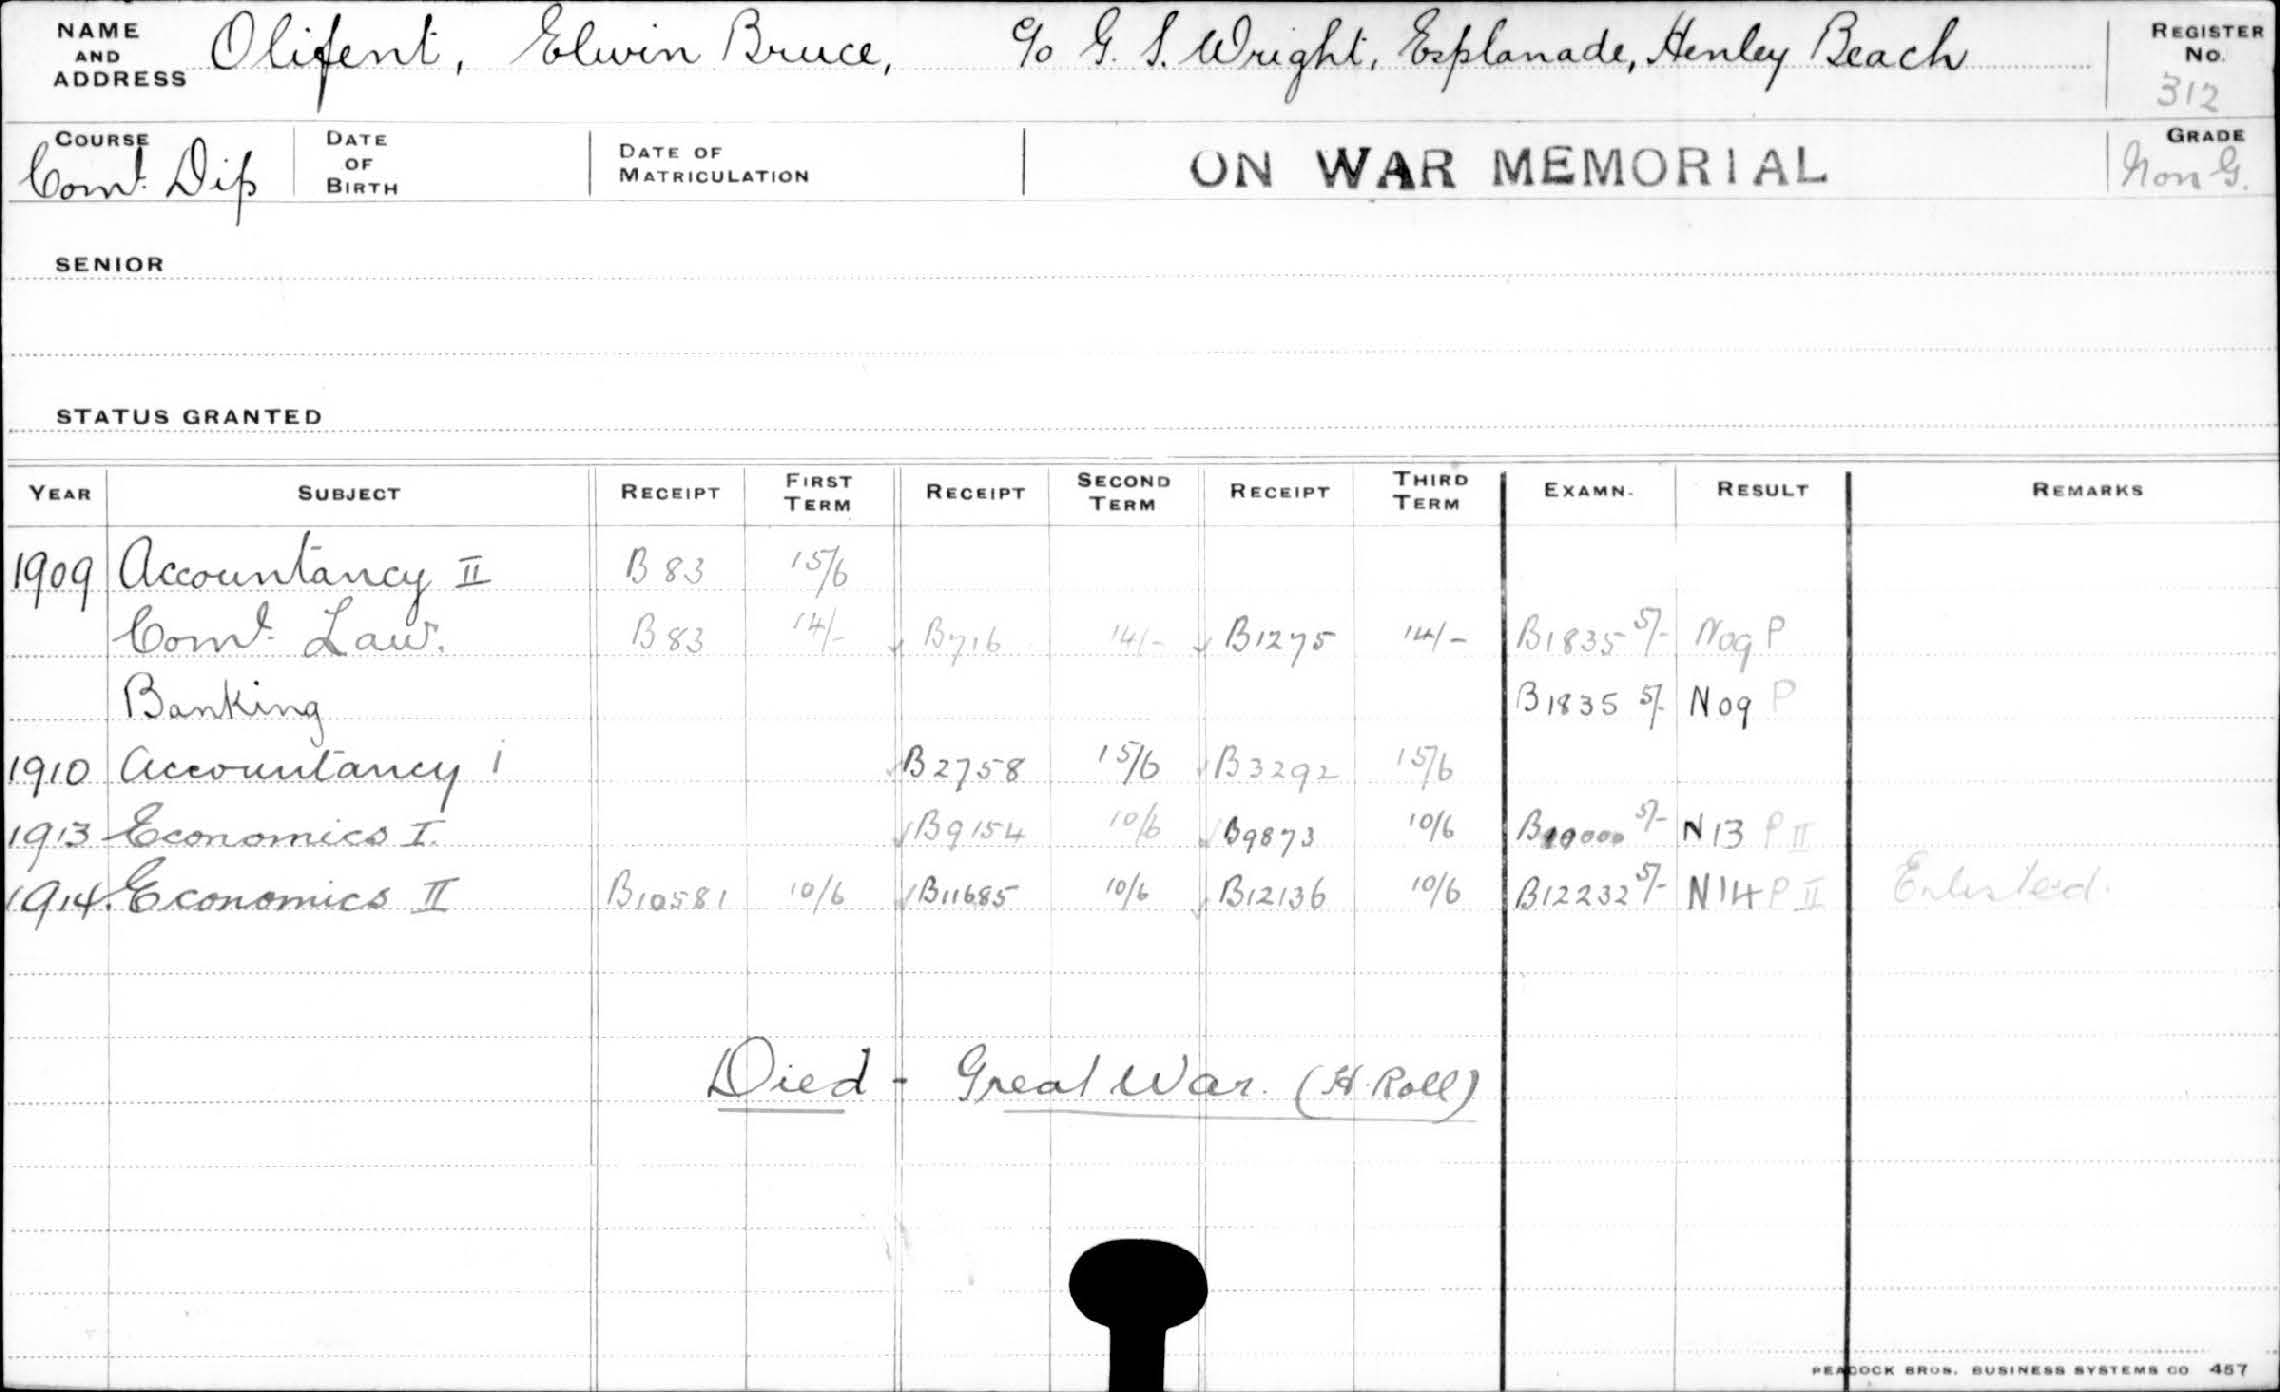 NAME AND ADDRESS Olifent, Elwin Bruce, c/o G. S. Wright, Esplanade, Henley Beach REGISTER No. 312
COURSE Coml. Dip DATE OF BIRTH DATE OF MATRICULATION ON WAR MEMORIAL GRADE Non G.
SENIOR
STATUS GRANTED
YEAR SUBJECT RECEIPT FIRST TERM RECEIPT SECOND TERM RECEIPT THIRD TERM EXAMN. RESULT REMARKS
1909 Accountancy II B 83 15/6
Coml. Law. B 83 14/- B716 14/- B1275 14/- B1835 5/- Nog P
Banking B1835 5/- Nog P
1910 Accountancy i B2758 15/6 B3292 15/6
1913 Economics I. B9154 10/6 B9873 10/6 5/- N13 P II
1914. Economics II B10581 10/6 B11685 10/6 B12136 10/6 B12232 5/- N14 P II Enlisted.
Died - Great War. (H. Roll)
PEACOCK BROS. BUSINESS SYSTEMS CO 457